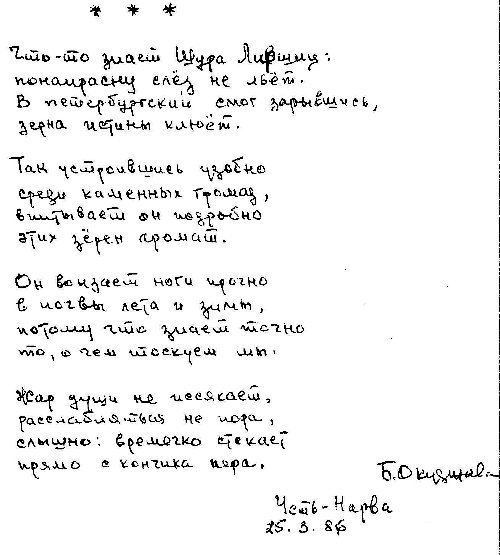 * * *
Что-то знает Шура Лившиц:
понапрасну слёз не льёт.
В петербургский смог зарывшись,
зерна истины клюёт.
Так устроившись удобно
среди каменных громад,
впитывает он подробно
этих зёрен аромат.
Он вонзает ноги прочно
в почвы лета и зимы,
потому что знает точно
то, о чем тоскуем мы.
Жар души не иссякает,
расслабляться не пора,
слышно: времечко стекает
прямо с кончика пера.
Б. Окуджава
Усть-Нарва
25. 3. 86